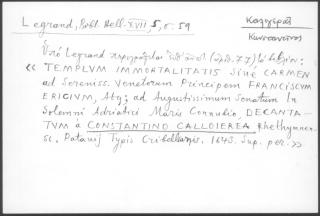 Legrand, Bibl. Hell. XVII, 5, σ. 59
Καλλιέργη
Κωνσταντῖνος
Ὑπό Legrand περιγράφεται ὑπ' ἀριθ. (ἀριθ. 77) τό βιβλίον:
« TEMPLVM IMMORTALITATIS Sive CARMEN
ad Sereniss. Venetorum Principem FRANCISCVM
ERICIVM, Atq; ad Augustissimum Senatum In
Solemni Adriatici Maris Connubio, DECANTA-
TVM à CONSTANTINO CALLOIEREA Rhethymnen-
se. Patavij Typis Cribellianis. 1643. Sup. per. »